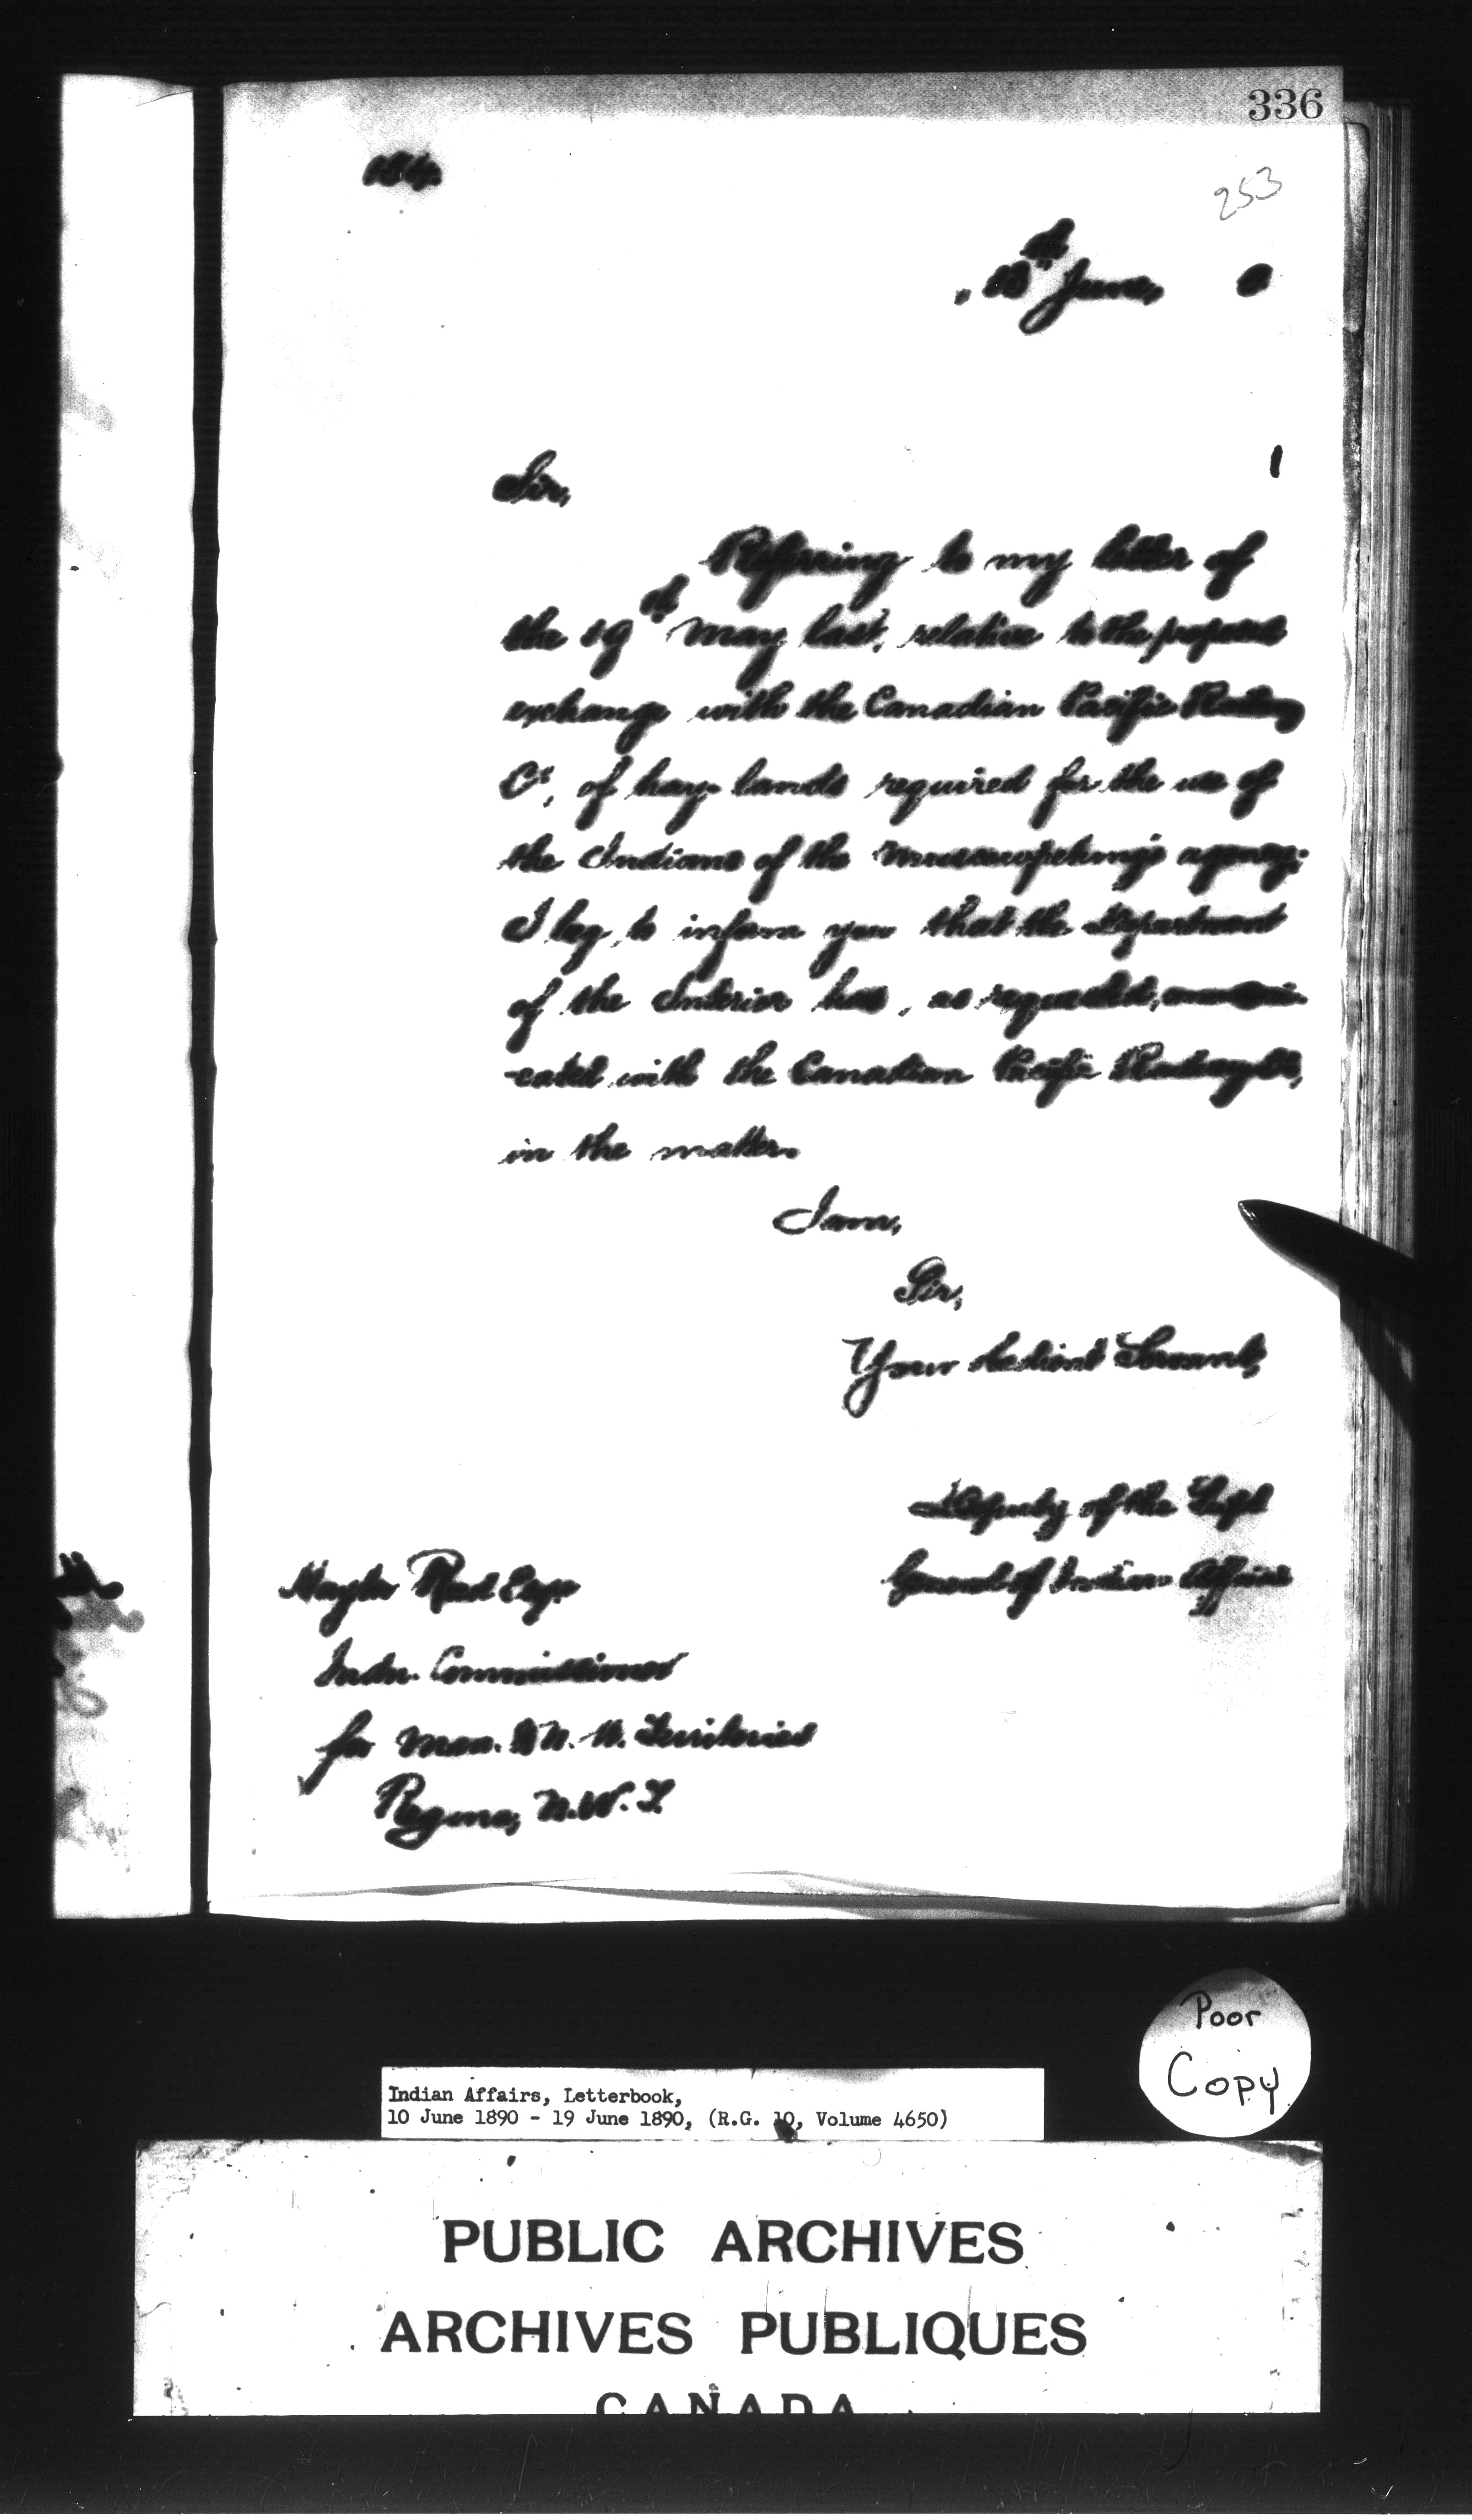 336
253
June, 0
Sir,
Referring to my letter of
the 19th May last, relative to the proposed
exchange with the Canadian Pacific Railway
Co, of hay lands required for the use of
the Indians of the Muscowpetung's agency;
I beg to inform you that the Department
of the Interior has, as requested, communi-
-cated with the Canadian Pacific Railway Co,
in the matter.
I am,
Sir,
Your obedient Servant,
Deputy of the Supt
General of Indian Affairs
Hayter Reed Esqr
Indn. Commissioner
for Man. & N. W. Territories
Regina, N.W.T.
Poor
Copy
Indian Affairs, Letterbook,
10 June 1890 - 19 June 1890, (R.G. 10, Volume 4650)
PUBLIC ARCHIVES
ARCHIVES PUBLIQUES
CANADA